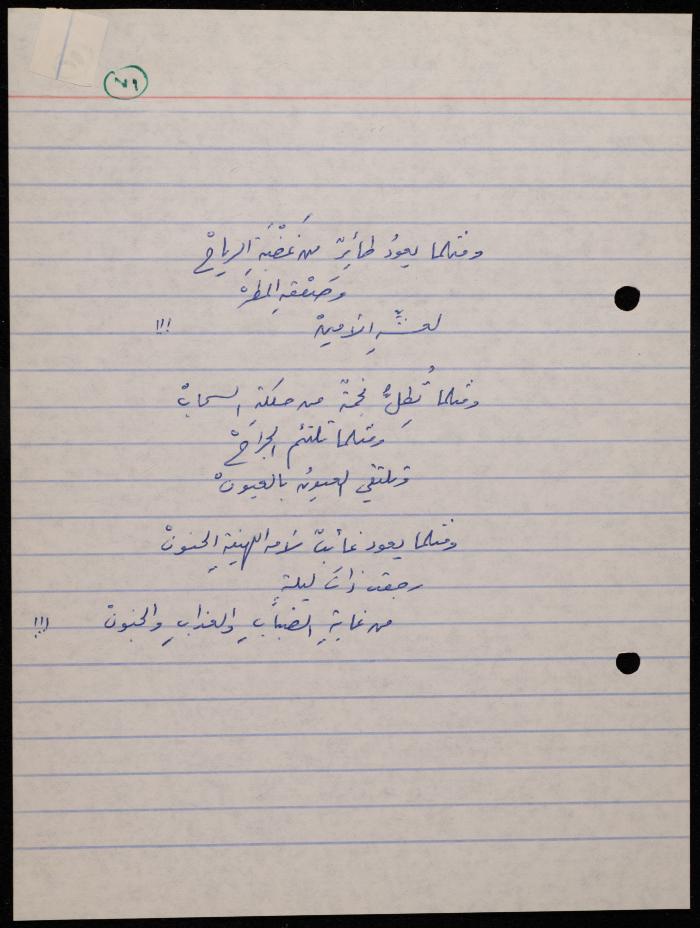 ٧٩
ومثلما يعودُ طائِرٌ من غَضْبَةِ الرياحْ
وصَفْعَةِ المطرْ
لعشِّهِ الأمينْ !!!
ومثلما تُطِلُّ نجمةٌ من حلكةِ السحابْ
ومثلما تلتئم الجراحْ
وتلتقي العيونُ بالعيونْ
ومثلما يعود غائبٌ لأمه اللهيفةِ الحنونْ
رجعت ذاتَ ليلةٍ
من غابةِ الضبابِ والعذابِ والجنونْ !!!